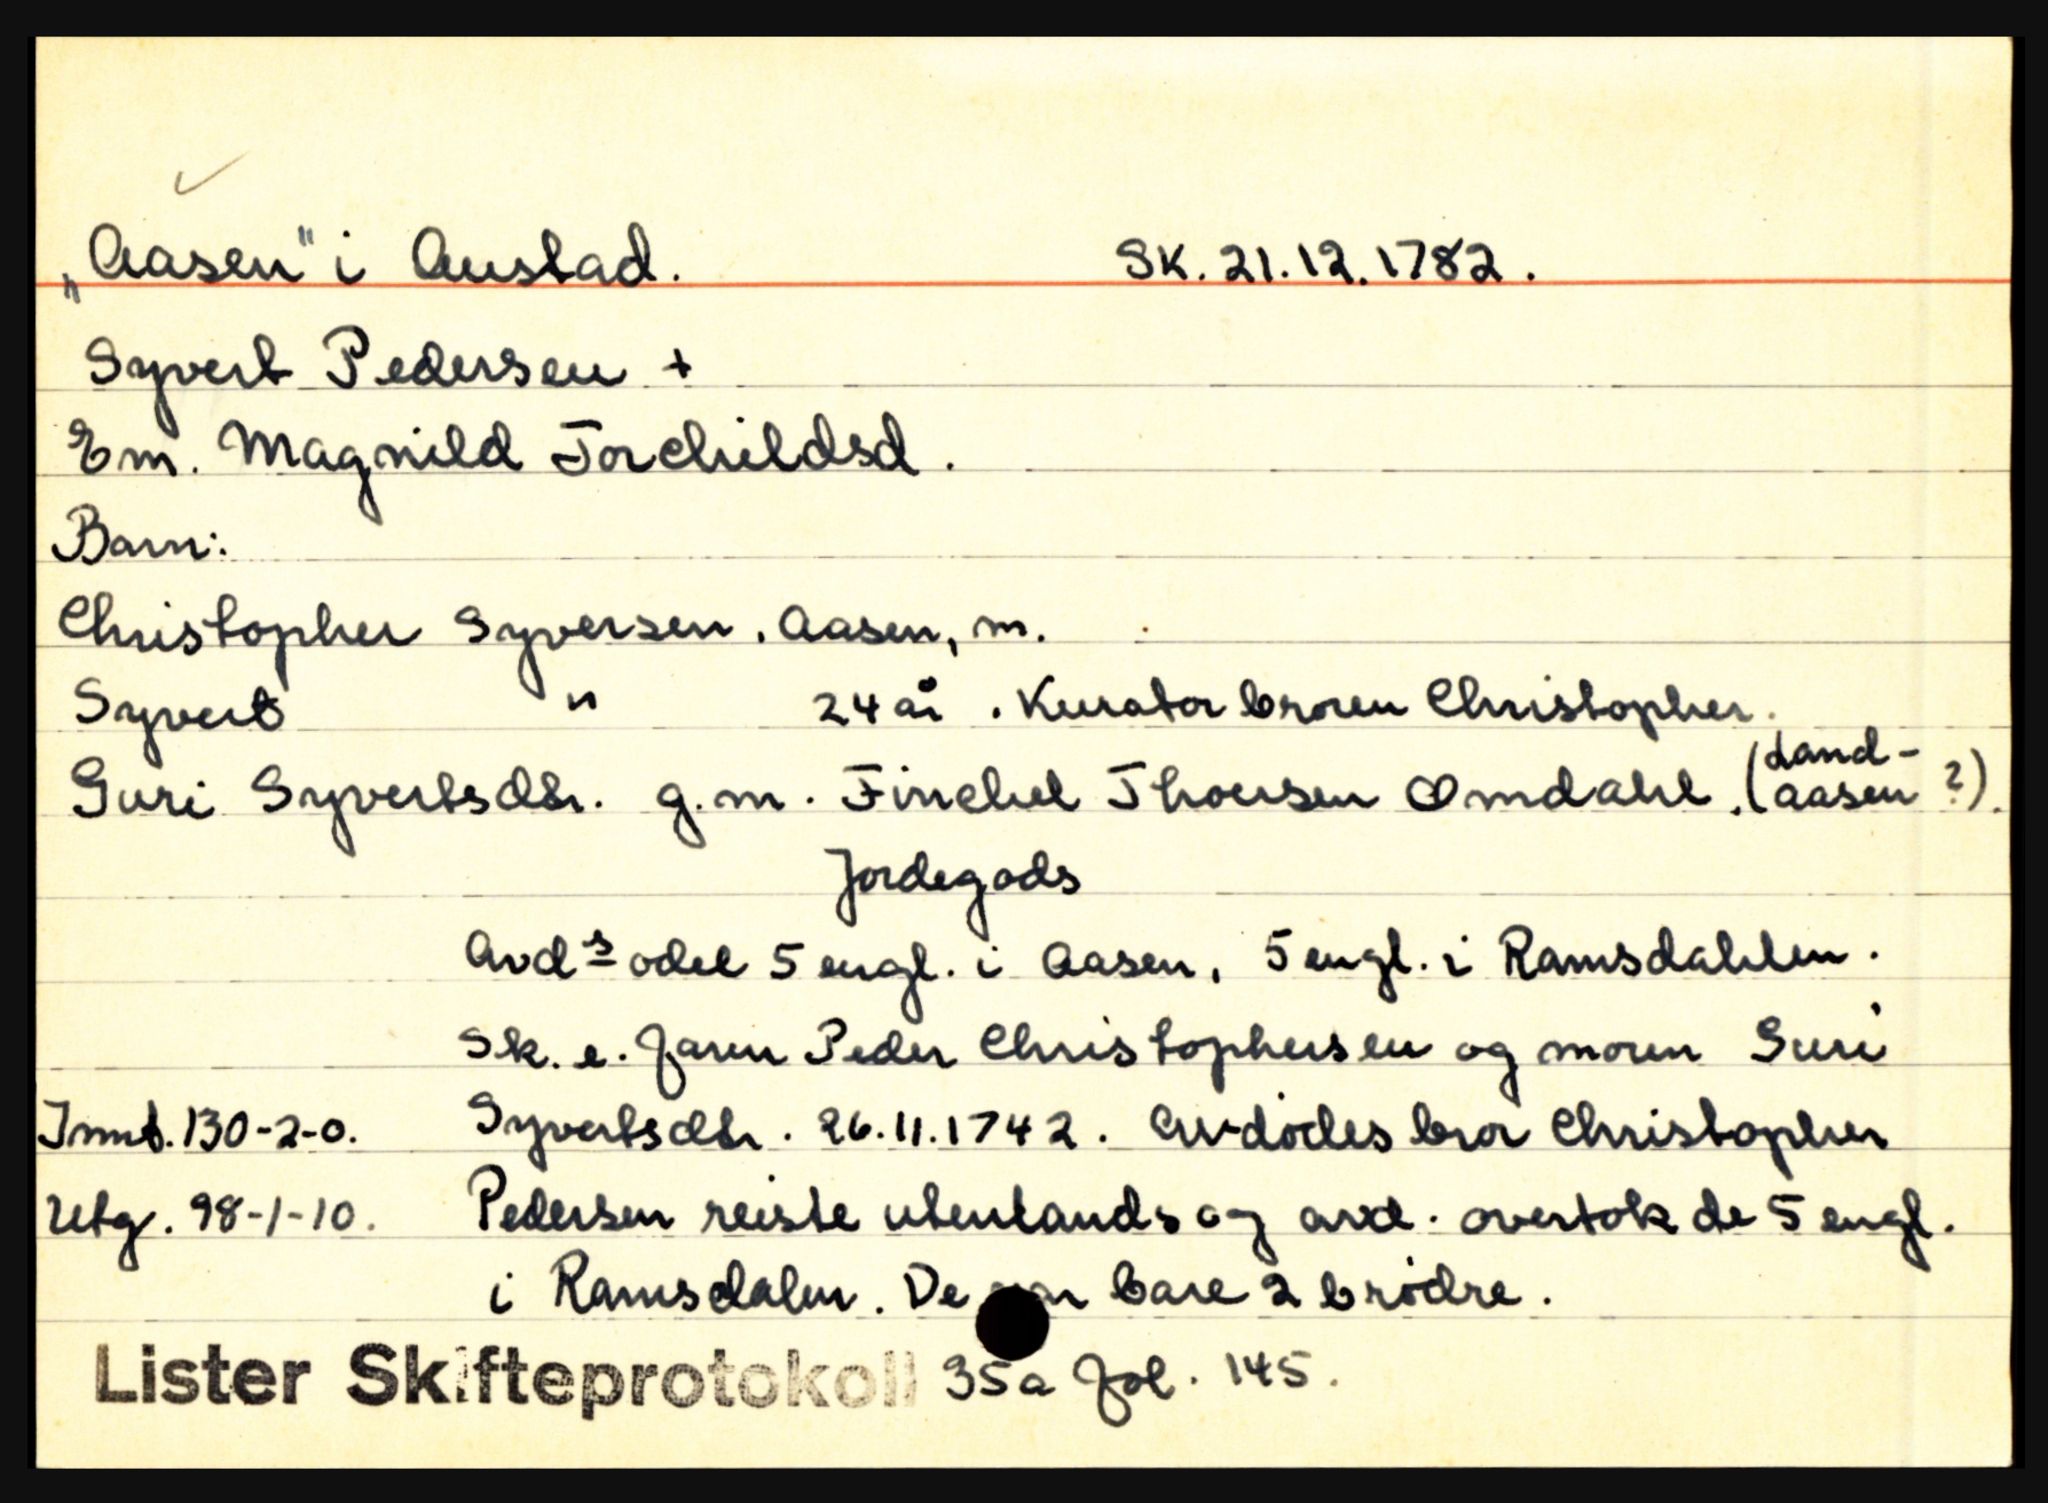 „Aasen" i Austad. Sk. 21.12.1782.
Syvert Pedersen +
Em. Magnild Torchildsd.
Barn:
Christopher Syversen. Aasen, m.
Syvert " 24 år. Kurator broren Christopher.
Guri Syvertsdtr. g.m. Finchel Thorsen Omdahl. (Land-
aasen ?).
Jordegods
Avds odel 5 engl. i Aasen, 5 engl. i Ramsdahlen.
Sk. e. faren Peder Christophersen og moren Guri
Innt. 130-2-0. Syvertsdtr. 26.11.1742. Avdødes bror Christopher
Utg. 98-1-10. Pedersen reiste utenlands og avd. overtok de 5 engl.
i Ramsdalen. De var bare 2 brødre.
Lister Skifteprotokoll 35a fol. 145.